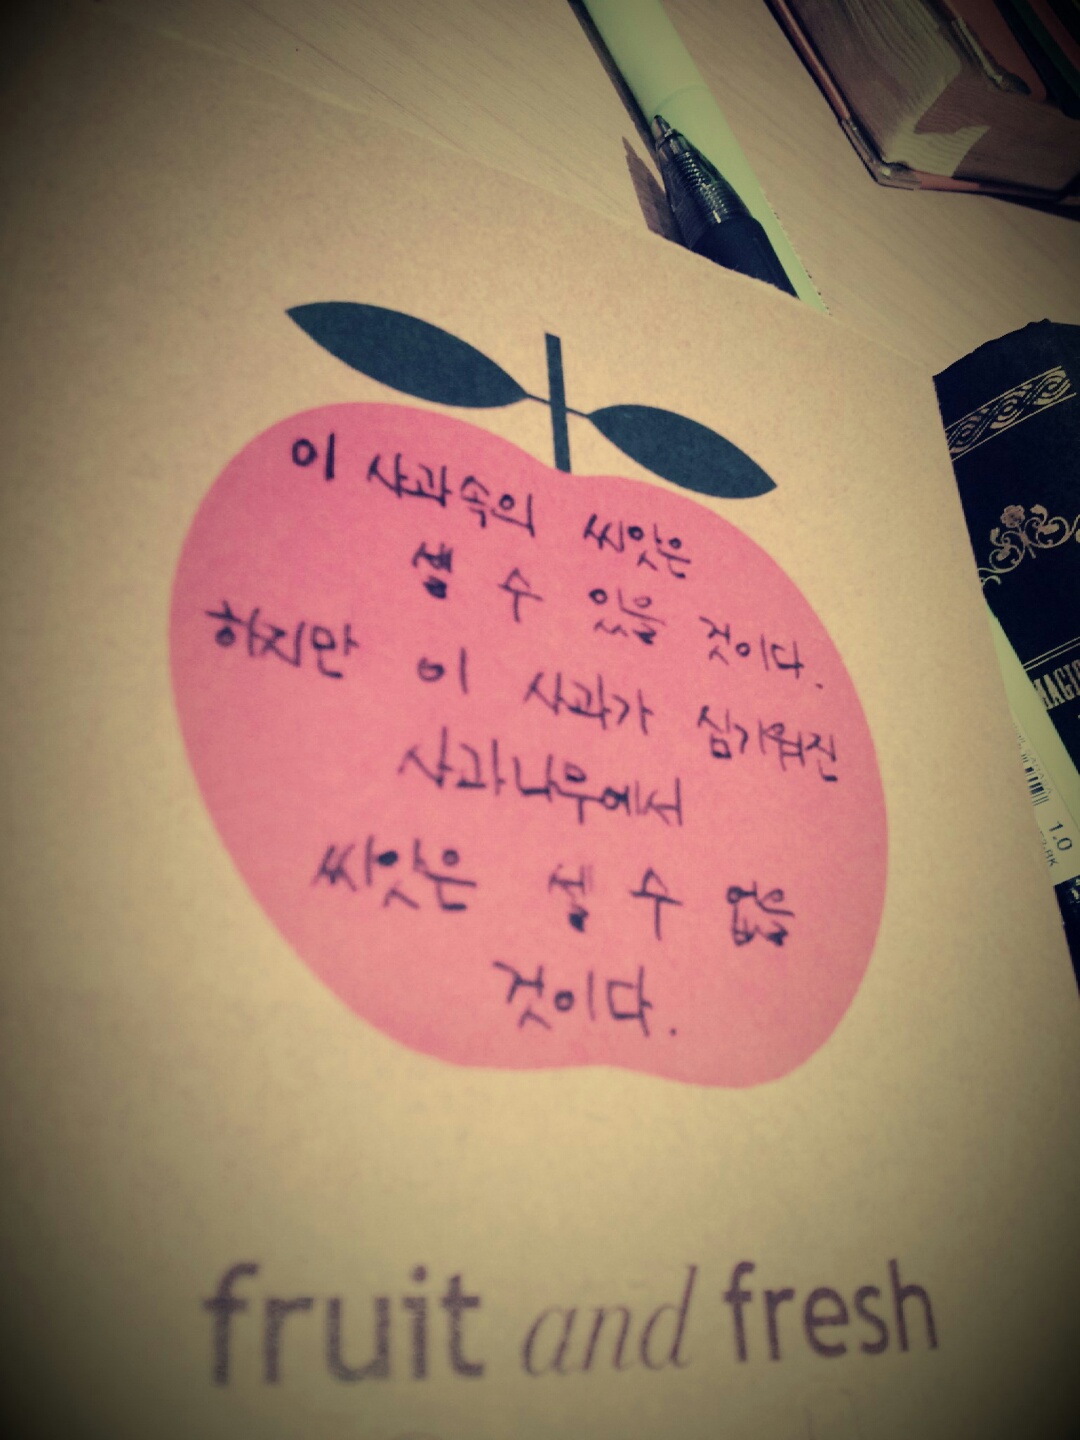 이 사과속의 씨앗은
셀 수 있을 것이다.
하지만 이 사과가 심기워진
사과나무에서
씨앗은 셀 수 없을
것이다.
fruit and fresh
MAGIC
1.0